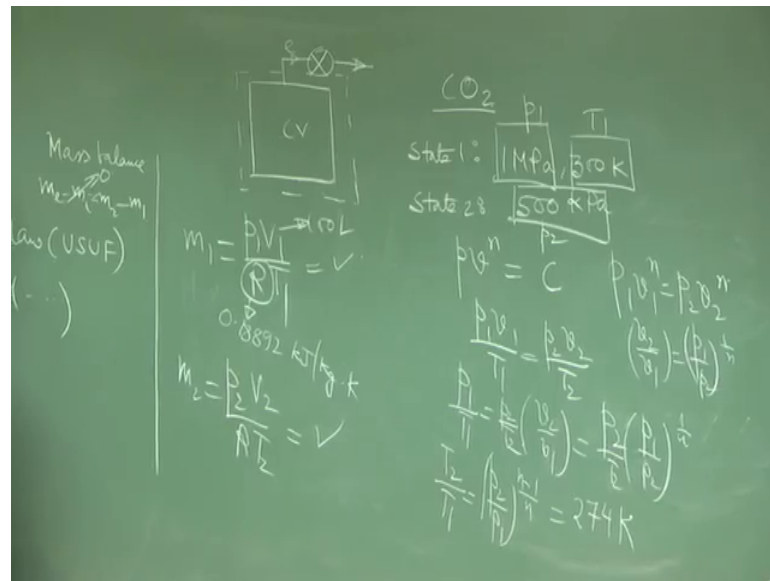 Mass balance
0
m₂ - mᵢ = m₂ - m₁
Law (USUF)
(---)
e
CV
m₁ = p₁V₁ / RT₁ = ✓
→ 100L
0.18892 kJ/kg.k
m₂ = P₂V₂ / RT₂ = ✓
CO₂
p₁ T₁
State 1: 1 MPa, 300 K
State 2: 500 kPa
p₂
pvⁿ = C
p₁v₁ⁿ = p₂v₂ⁿ
p₁v₁/T₁ = p₂v₂/T₂
(v₂/v₁) = (p₁/p₂)^1/n
p₁/T₁ = p₂/T₂ (v₂/v₁) = p₂/T₂ (p₁/p₂)^1/n
T₂/T₁ = (p₂/p₁)^n-1/n = 274 K